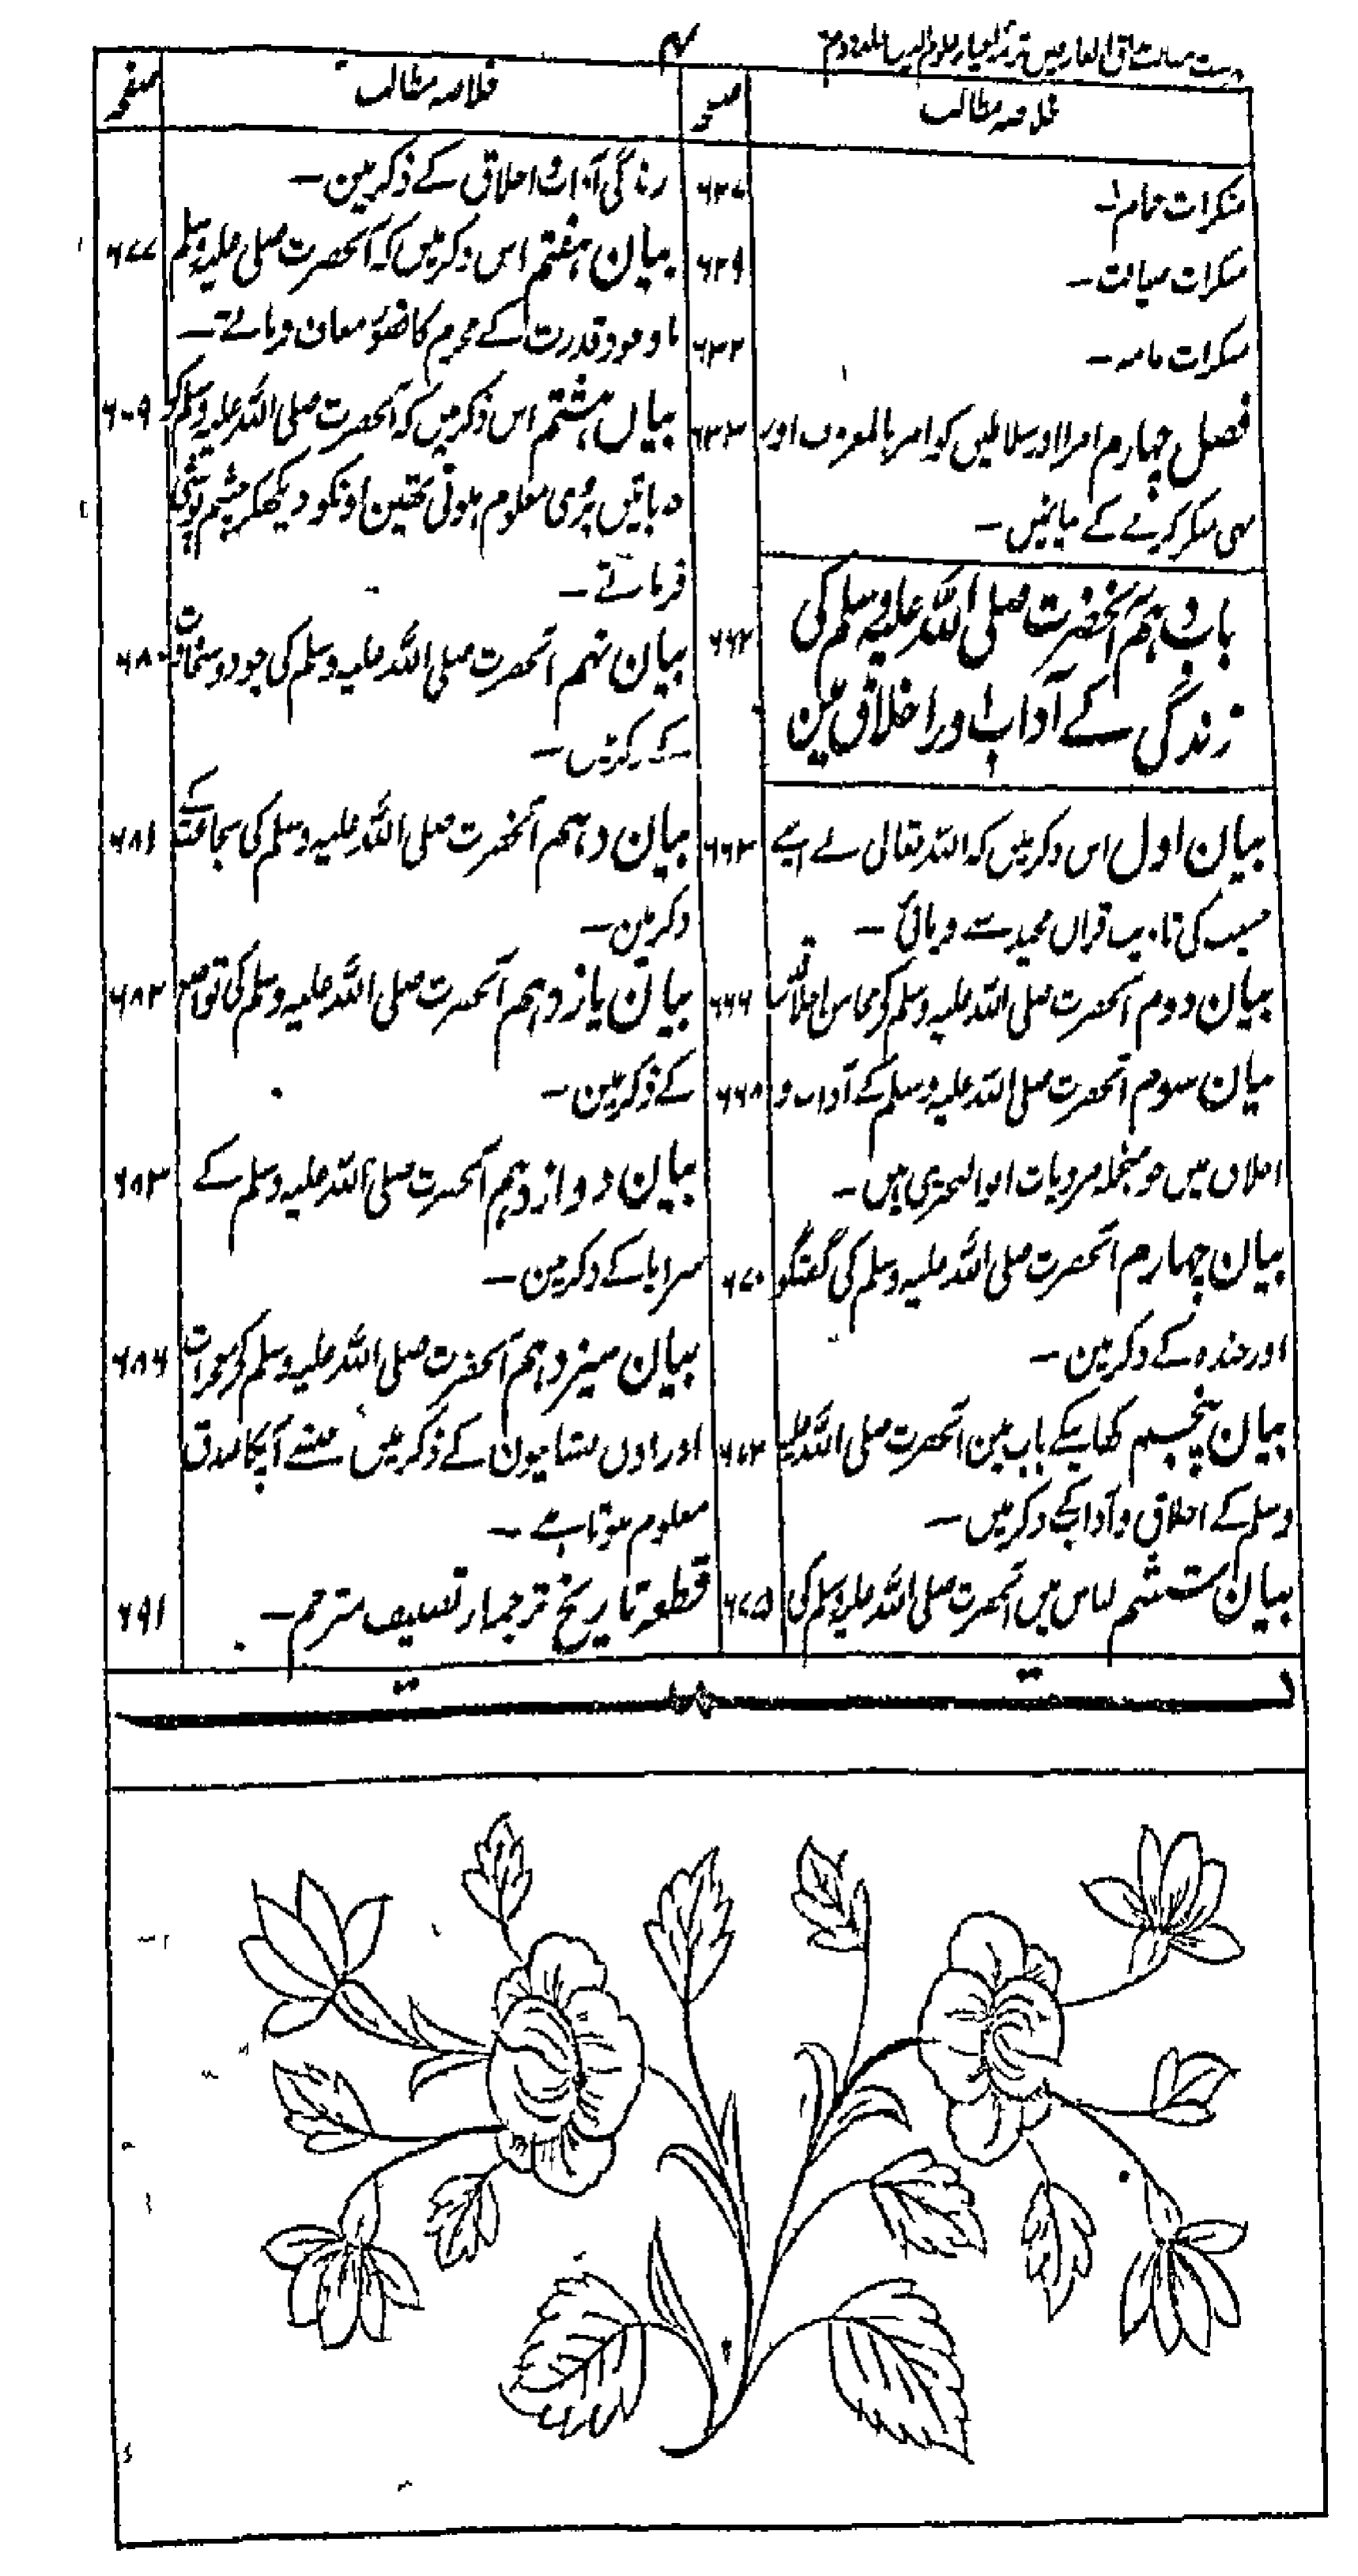 ۴
خلاصہ مطالب
صفحہ
منکرات حمام۔
۶۲۷
منکرات ضیافت۔
۶۲۹
منکرات عامہ۔
۶۳۲
فصل چہارم امرا اور سلاطین کو امر بالمعروف اور
۶۳۳
نہی منکر کرنے کے بیانمیں۔
باب دہم آنحضرت صلی اللہ علیہ وسلم کی
۶۶۲
زندگی کے آداب اور اخلاق مین
بیان اول اس ذکر میں کہ اللہ تعالی نے اپنے
۶۶۳
حبیب کی تادیب قرآن مجید سے فرمائی۔
بیان دوم آنحضرت صلی اللہ علیہ وسلم کے محاسن اخلاق
۶۶۶
بیان سوم آنحضرت صلی اللہ علیہ وسلم کے آداب و
۶۶۸
اخلاق میں جو منجملہ مرویات ابوالبحتری ہیں۔
بیان چہارم آنحضرت صلی اللہ علیہ وسلم کی گفتگو
۶۷۰
اور خندہ کے ذکر مین۔
بیان پنجسم کھانیکے باب مین آنحضرت صلی اللہ علیہ
۶۷۲
وسلم کے اخلاق و آداب کے ذکر میں۔
بیان ششم لباس میں آنحضرت صلی اللہ علیہ وسلم کی
۶۷۵
خلاصہ مطالب
صفحہ
زندگی آداب اخلاق کے ذکر مین۔
بیان ہفتم اس ذکر میں کہ آنحضرت صلی علیہ وسلم
۶۷۷
باوجود قدرت کے مجرم کا قصور معاف فرماتے۔
بیان ہشتم اس ذکر میں کہ آنحضرت صلی اللہ علیہ وسلم کو
۶۷۹
جو باتیں بری معلوم ہوتی تھین اونکو دیکھکر چشم پوشی
فرماتے۔
بیان نہم آنحضرت صلی اللہ علیہ وسلم کی جود و سخاوت
۶۸۰
کے ذکر میں۔
بیان دہم آنحضرت صلی اللہ علیہ وسلم کی شجاعت کے
۶۸۱
ذکر مین۔
بیان یازدہم آنحضرت صلی اللہ علیہ وسلم کی تواضع
۶۸۲
کے ذکر مین۔
بیان دوازدہم آنحضرت صلی اللہ علیہ وسلم کے
۶۸۳
سراپا کے ذکر مین۔
بیان سیزدہم آنحضرت صلی اللہ علیہ وسلم کے معجزات
۶۸۶
اور اون نشانیون کے ذکر میں جنسے آپکا صدق
معلوم ہوتا ہے۔
قطعہ تاریخ ترجمہ از تصنیف مترجم۔
۶۹۱